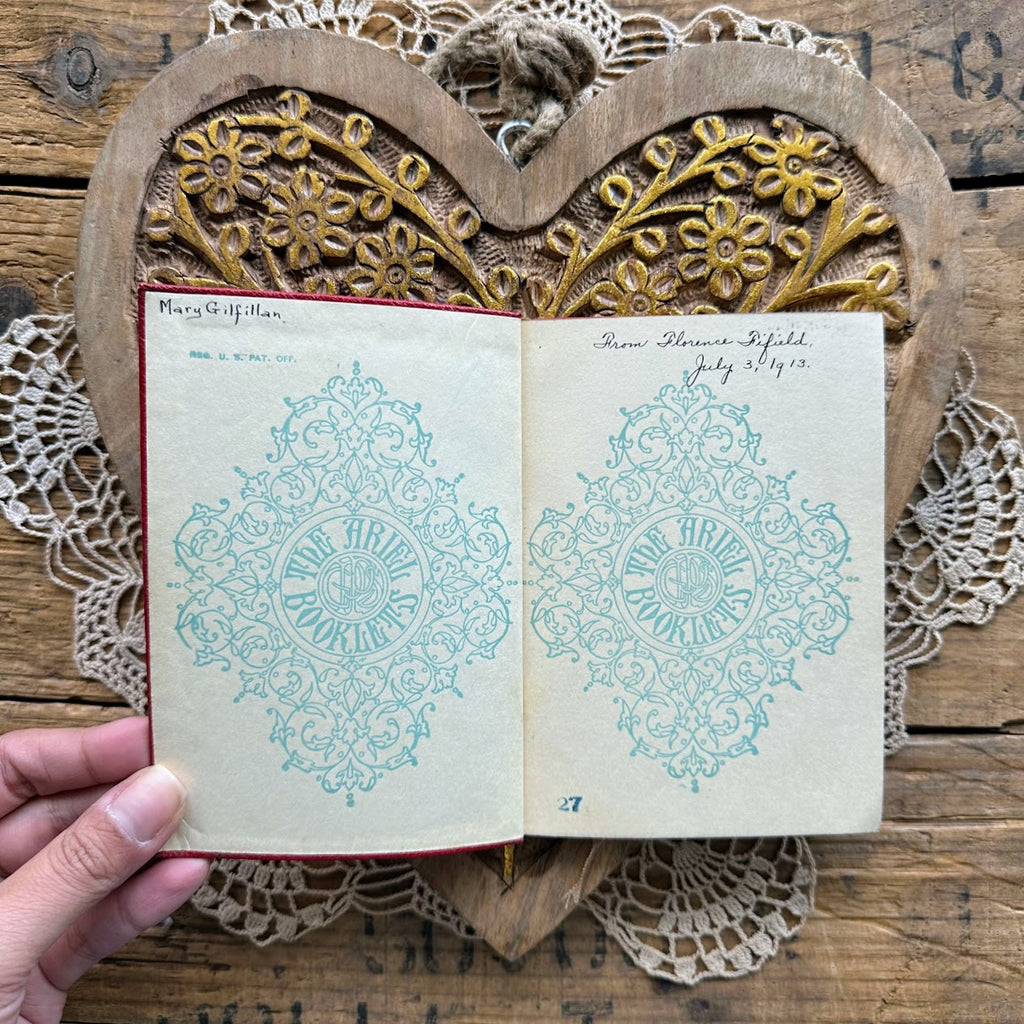 Mary Gilfillan
REG. U. S. PAT. OFF.
THE ARIEL
BOOKLETS
From Florence Fifield,
July 3, 1913.
THE ARIEL
BOOKLETS
27